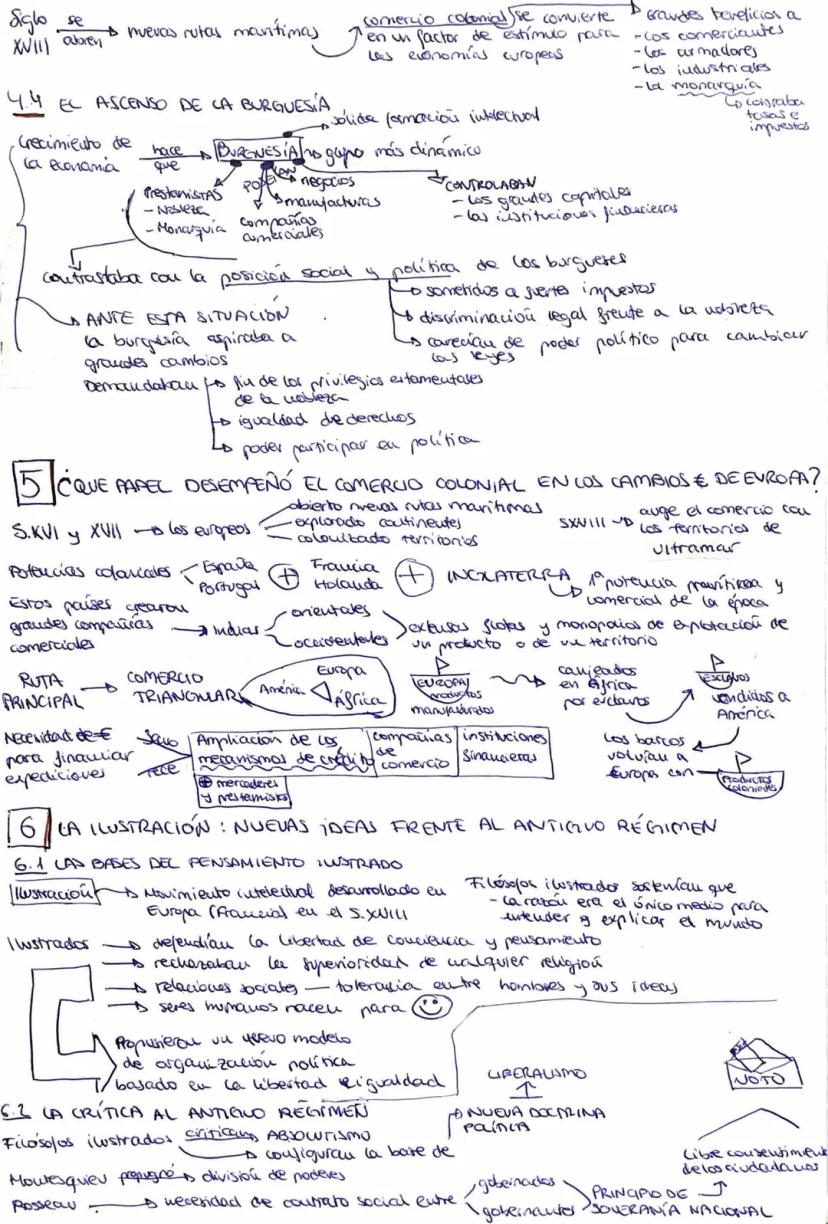 Siglo XVIII se abren nuevas rutas marítimas
comercio colonial se convierte
en un factor de estímulo para
las economías europeas
Grandes beneficios a
- Los comerciantes
- Los armadores
- Los industriales
- La monarquía
cobraba
tasas e
impuestos
4.4 EL ASCENSO DE LA BURGUESÍA
sólida formación intelectual
Crecimiento de
la economía
hace
que
BURGUESÍA grupo más dinámico
Prestamistas
- Nobleza
- Monarquía
negocios
manufacturas
compañías
comerciales
CONTROLABAN
- Los grandes capitales
- Las instituciones financieras
contrastaba con la posición social y política de los burgueses
sometidos a fuertes impuestos
discriminación legal frente a la nobleza
carecían de poder político para cambiar
las leyes
ANTE ESTA SITUACIÓN
la burguesía aspiraba a
grandes cambios
Demandaban fin de los privilegios estamentales
de la nobleza
igualdad de derechos
poder participar en política
5 ¿QUE PAPEL DESEMPEÑÓ EL COMERCIO COLONIAL EN LOS CAMBIOS € DE EUROPA?
S.XVI y XVII los europeos
abierto nuevas rutas marítimas
explorado continentes
colonizado territorios
SXVIII auge el comercio con
los territorios de
ultramar
Potencias coloniales
España
Portugal
+
Francia
Holanda
+
INGLATERRA
1ª potencia marítima y
comercial de la época
Estos países crearon
grandes compañías
comerciales
Indias
orientales
occidentales
extensas flotas y monopolios de explotación de
un producto o de un territorio
RUTA
PRINCIPAL
COMERCIO
TRIANGULAR
Europa
América
África
EUROPA
productos
manufacturados
canjeados
en África
por esclavos
esclavos
vendidos a
América
Los barcos
volvían a
Europa con
Productos
coloniales
Necesidad de €
para financiar
expediciones
Ampliación de los
mecanismos de crédito
compañías
de
comercio
instituciones
financieras
+ mercaderes
y prestamistas
6 LA ILUSTRACIÓN: NUEVAS IDEAS FRENTE AL ANTIGUO RÉGIMEN
6.1 LAS BASES DEL PENSAMIENTO ILUSTRADO
Ilustración Movimiento intelectual desarrollado en
Europa (Francia) en el S.XVIII
Filósofos ilustrados sostenían que
- La razón era el único medio para
entender y explicar el mundo
Ilustrados defendían la libertad de conciencia y pensamiento
rechazaban la superioridad de cualquier religión
relaciones sociales — tolerancia entre hombres y sus ideas
seres humanos nacen para
Propusieron un nuevo modelo
de organización política
basado en la libertad e igualdad
6.2 LA CRÍTICA AL ANTIGUO RÉGIMEN
Filósofos ilustrados critican ABSOLUTISMO
configuran la base de
NUEVA DOCTRINA
POLÍTICA
LIBERALISMO
Montesquieu propugnó división de poderes
Rosseau necesidad de contrato social entre
gobernados
gobernantes
PRINCIPIO DE
SOBERANÍA NACIONAL
Libre consentimiento
de los ciudadanos
VOTO